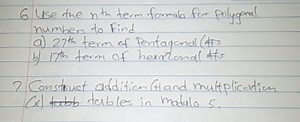 6. Use the nth term formula for polygonal
numbers to find
a) 27th term of Pentagonal #s
b) 17th term of hexagonal #s
7. Construct addition (+) and multplication
(x) tables in modulo 5.